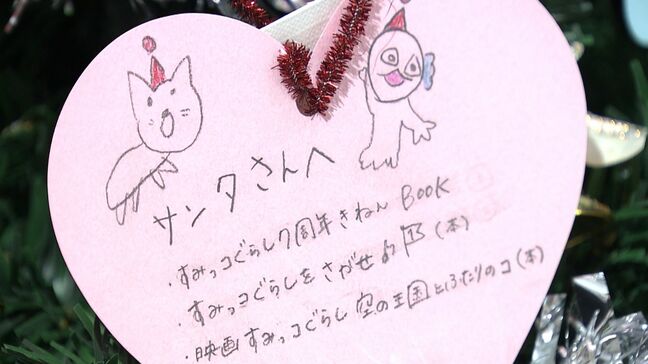 サンタさんへ
・すみっコぐらし7周年きねんBOOK
・すみっコぐらしをさがせ (本)
・映画すみっコぐらし 空の王国とふたりのコ(本)